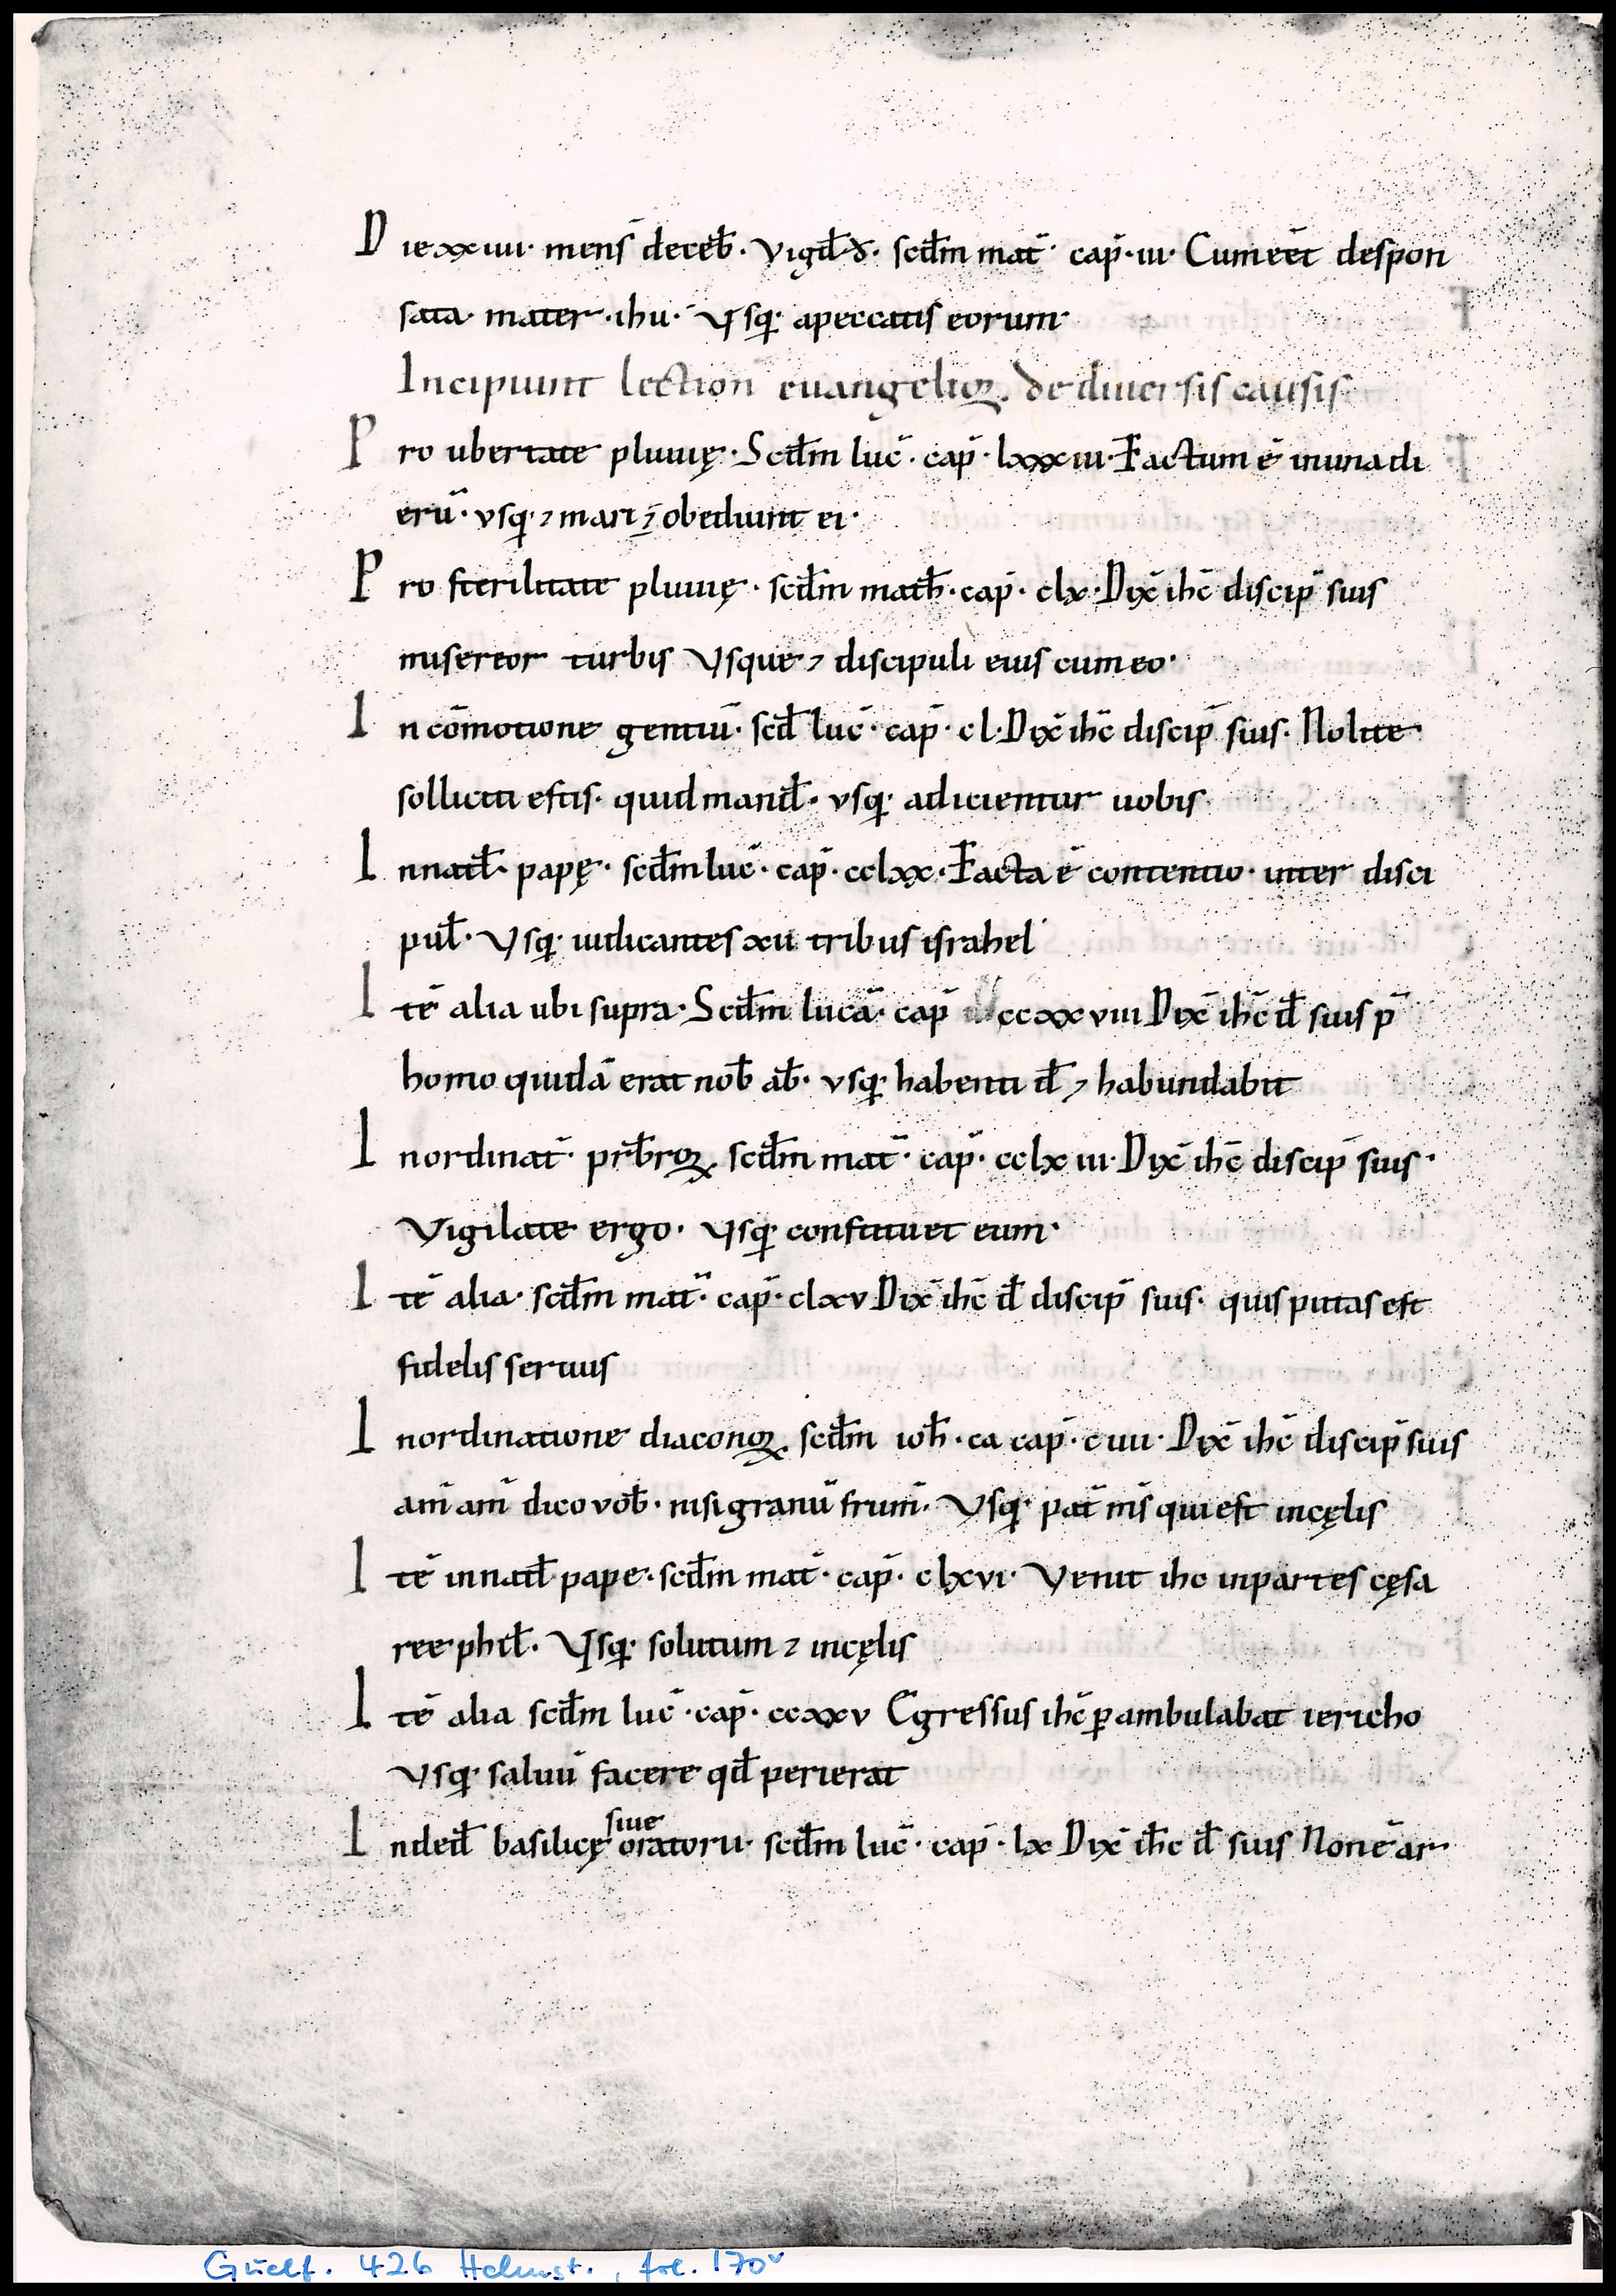 Die xxiiii· mens̄ deceb̄· Vigł d̄· scđm mat̄· cap̄· iii· Cum eēt despon
sata· mater· ihu· Vsq· apeccatis eorum·
Incipiunt lection euangelioꝝ. de diuersis causis
Pro ubertate pluuię· Scđm luc̄· cap̄· lxxxiii· Factum ē inuna di
erū· vsq· ⁊ mari ⁊̄ obediunt ei·
Pro sterilitate pluuię· scđm math̄· cap̄· clx· Dix̄ ihc̄ discip̄ suis
misereor turbis Vsque ⁊ discipuli eius cum eo·
In cōmotione gentiū· scđ luc̄· cap̄· cl· Dix̄ ihc̄ discip̄ suis· Nolite·
solliciti estis· quid mand̄· vsq· adicientur uobis
In natł· papę· scđm luc̄· cap̄· cclxx· Facta ē contentio· inter disci
puł· Vsq· iudicantes xii tribus israhel
Itē alia ubi supra· Scđm lucā· cap̄ ccxxviii Dix̄ ihc̄ đ suis p̄
homo quidā erat nob̄ ab̄· vsq· habenti đ ⁊ habundabit
In ordinat̄· pr̄br̄oꝝ scđm mat̄· cap̄· cclxiii· Dix̄ ihc̄ discip̄ suis·
Vigilate ergo· Vsq· constituet eum·
Itē alia· scđm mat̄· cap̄· clxv Dix̄ ihc̄ đ discip̄ suis· quis putas est
fidelis seruus
In ordinatione diaconoꝝ scđm ioh̄· ca cap̄· cuii· Dix̄ ihc̄ discip̄ suis
am̄ am̄ dico vob̄· nisi granū frum̄· Vsq· pat̄ m̄s qui est incęlis
Itē in natł· pape· scđm mat̄· cap̄· clxvi· Venit ihc inpartes cęsa
ree phił· Vsq· solutum ⁊ incęlis
Itē alia scđm luc̄· cap̄· ccxxv Egressus ihc̄ ꝑambulabat iericho
Vsq· saluū facere qđ perierat
In ded̄ basilicę siue oratorii· scđm luc̄· cap̄· lx Dix̄ ihc̄ đ suis Non ē ar
Guelf. 426 Helmst., fol. 170v